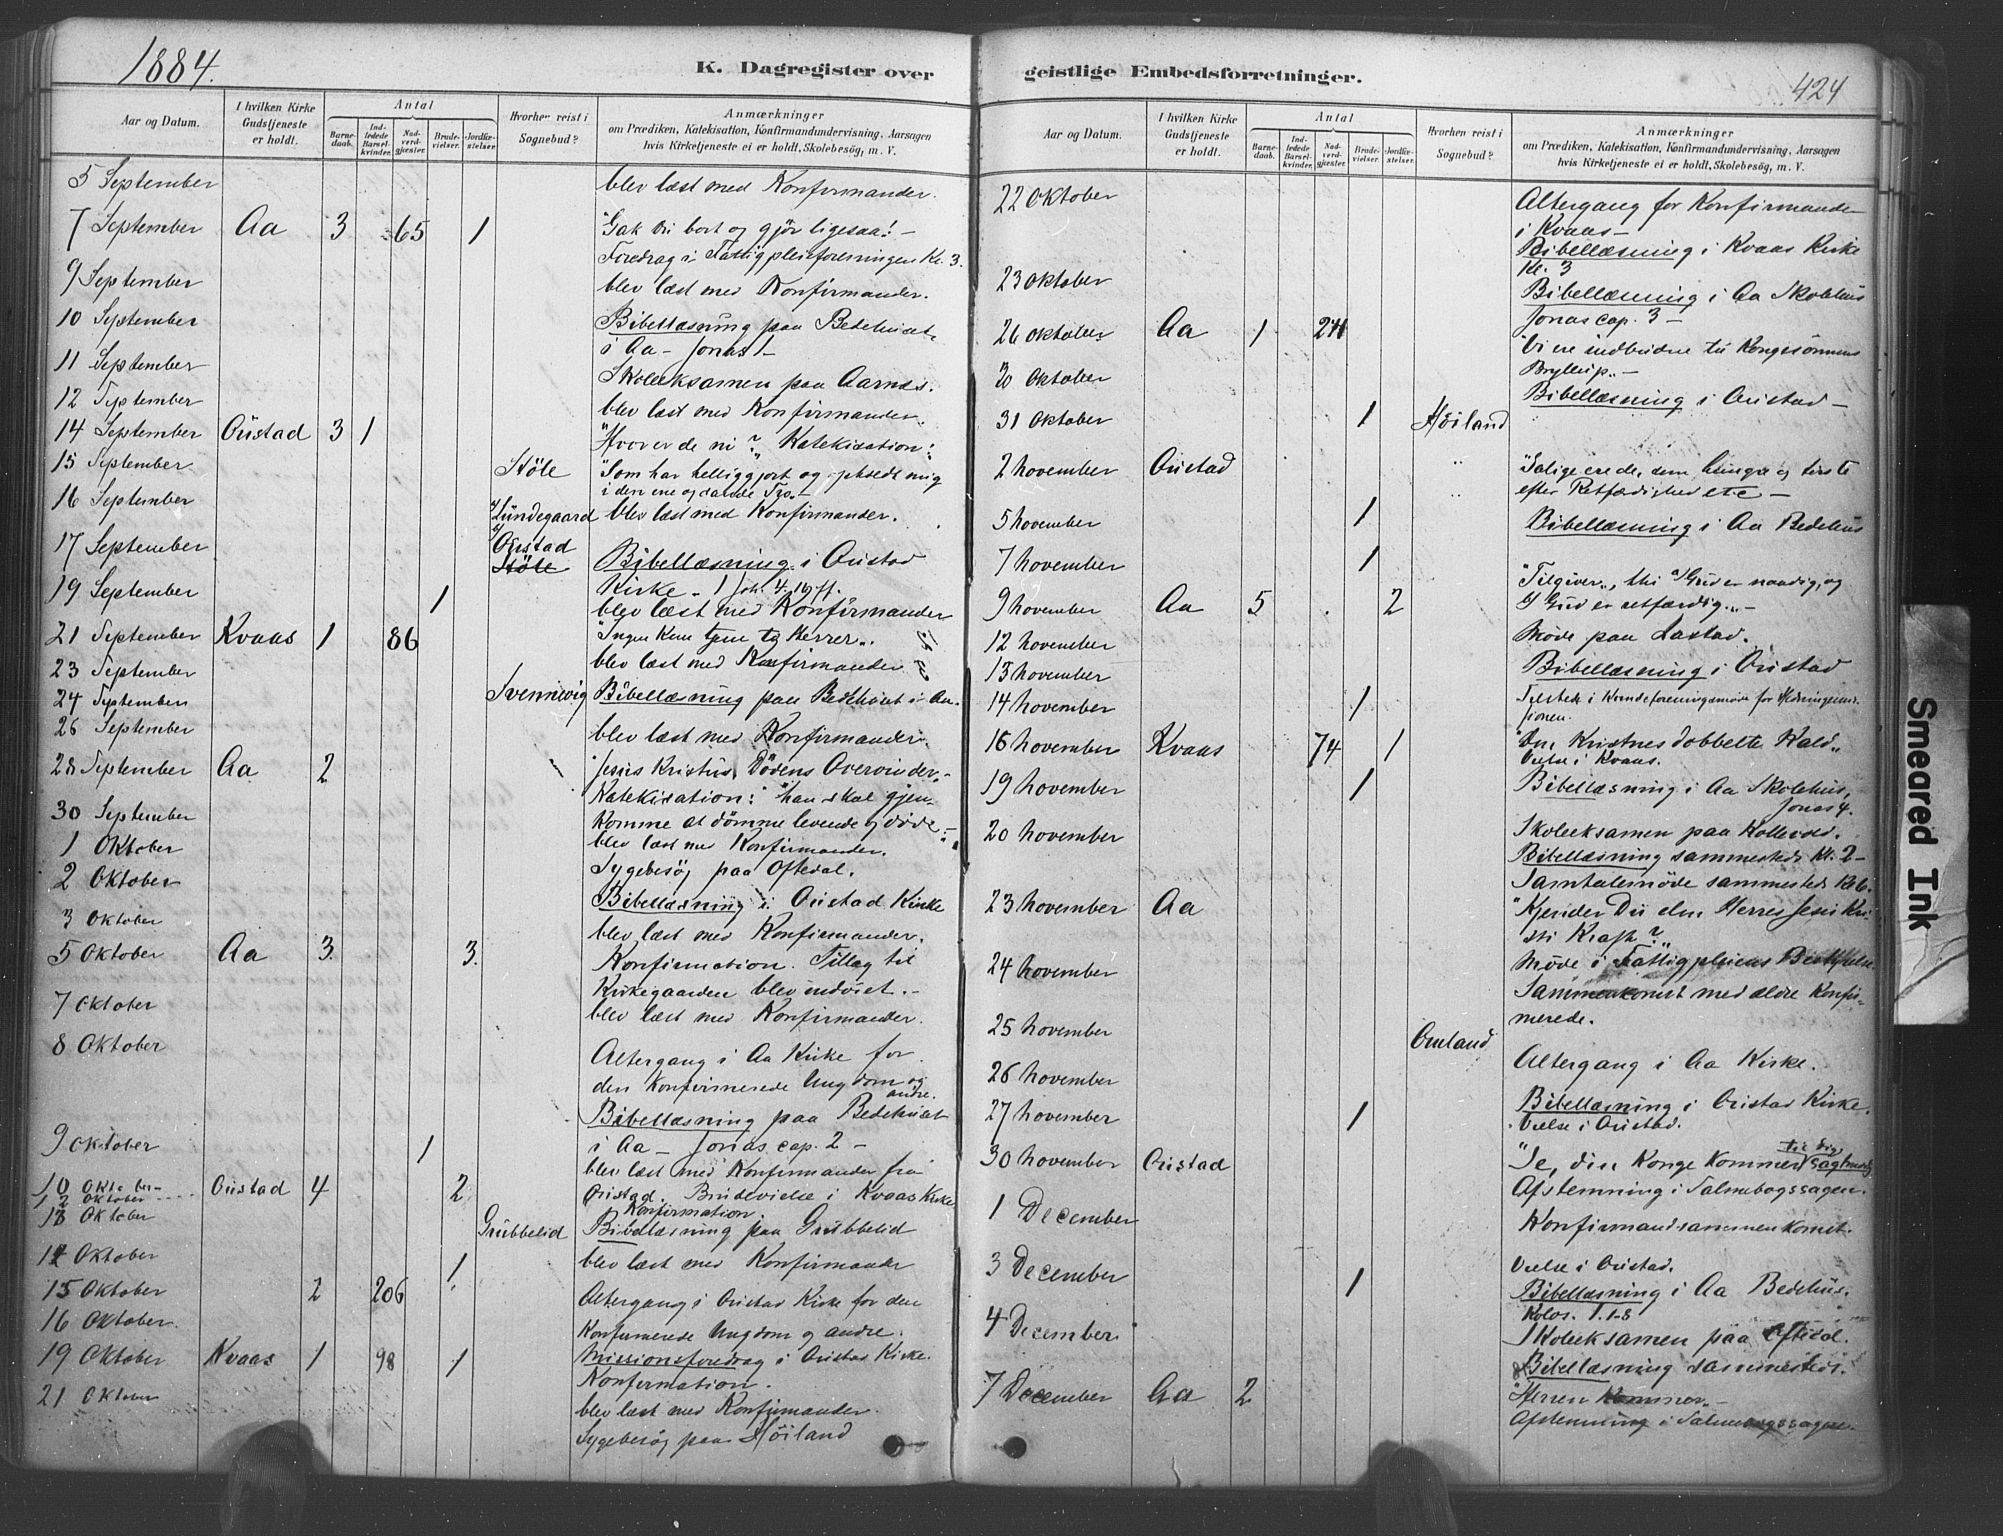 1884.
K. Dagregister over
Aar og Datum.
I hvilken Kirke Gudstjeneste er holdt.
Antal
Barnedaab.
Indledede Barselkvinder.
Nadverdgjester.
Brudevielser.
Jordfæstelser.
Hvorhen reist i Sognebud?
Anmærkninger
om Prædiken, Katekisation, Konfirmandundervisning, Aarsagen
hvis Kirketjeneste ei er holdt, Skolebesög, m. V.
5 September blev læst med Konfirmander.
7 September Aa 3 65 1 "Gak du bort og gjör ligesaa! –
Foredrag i Fattigpleieforeningen Kl. 3.
9 September blev læst med Konfirmander.
10 September Bibellæsning paa Bedehuset
i Aa – Jonas 1 –
11 September Skoleeksamen paa Aarnes.
12 September blev læst med Konfirmander.
14 September Oustad 3 1 "Hvor er de ni? Katekisation:
15 September Stöle "Som har helliggjort og opholdt mig
i den ene og sande Tro. –
16 September Lundegaard blev læst med Konfirmander.
17 September Oustad Stöle Bibellæsning i Oustad
Kirke. 1 Joh. 4, 19 ff.
19 September 1 blev læst med Konfirmander
21 September Kvaas 1 86 "Ingen kan tjene to Herrer".
23 September blev læst med Konfirmander
24 September Svennevig Bibellæsning paa Bedehuset i Aa.
26 September blev læst med Konfirmander.
28 September Aa 2 "Jesus Kristus, Dödens Overvinder. –
Katekisation: "han skal gjen-
30 September komme at dömme levende og döde –
1 Oktober blev læst med Konfirmander.
2 Oktober Sygebesög paa Oftedal.
3 Oktober Bibellæsning i Oustad Kirke
blev læst med Konfirmander.
5 Oktober Aa 3 3. Konfirmation. Tillæg til
Kirkegaarden blev indviet. –
7 Oktober blev læst med Konfirmander.
8 Oktober Altergang i Aa Kirke for
den konfirmerede Ungdom og andre.
Bibellæsning paa Bedehuset
9 Oktober 1 i Aa – Jonas cap. 2 –
blev læst med Konfirmander fra
10 Oktober
12 Oktober Oustad 4 2 Oustad. Brudevielse i Kvaas Kirke
Konfirmation.
13 Oktober Grubbelid Bibellæsning paa Grubbelid
14 Oktober 1 blev læst med Konfirmander
15 Oktober 2 206 Altergang i Oustad Kirke for den
16 Oktober konfirmerede Ungdom og andre.
Missionsforedrag i Oustad Kirke.
19 Oktober Kvaas 1 98 1 Konfirmation.
21 Oktober blev læst med Konfirmander.
Sygebesög paa Höiland
geistlige Embedsforretninger.
424
Aar og Datum.
I hvilken Kirke Gudstjeneste er holdt.
Antal
Barnedaab.
Indledede Barselkvinder.
Nadverdgjester.
Brudevielser.
Jordfæstelser.
Hvorhen reist i Sognebud?
Anmærkninger
om Prædiken, Katekisation, Konfirmandundervisning, Aarsagen
hvis Kirketjeneste ei er holdt, Skolebesög, m. V.
22 Oktober Altergang for Konfirmander
i Kvaas –
Bibellæsning i Kvaas Kirke
Kl. 3
23 Oktober Bibellæsning i Aa Skolehus
Jonas cap. 3 –
26 Oktober Aa 1 24 "Vi ere indbudne til Kongesönnens
Bryllup". –
30 Oktober Bibellæsning i Oustad –
31 Oktober 1 Höiland
2 November Oustad "Salige ere de, som hungre og törste
efter Retfærdighed etc –
5 November 1 Bibellæsning i Aa Bedehus
7 November 1
9 November Aa 5 2 "Tilgiver", thi Gud er naadig, og
Gud er retfærdig". –
12 November Möde paa Lastad.
13 November Bibellæsning i Oustad
14 November 1 i Kvindeforeningsmöde for Hedningemis-
sionen.
16 November Kvaas 74 1 "Den Kristnes dobbelte Kald".
Vielse i Kvaas.
19 November 1 Bibellæsning i Aa Skolehus,
Jonas 4.
20 November Skoleeksamen paa
Bibellæsning sammesteds Kl. 2 –
Samtalemöde sammesteds Kl. 6.
23 November Aa "Kjender Du den Herres Jesu Kri-
sti Kraft?"
24 November Möde i Fattigpleiens Bestyrelse.
Sammenkomst med ældre Konfir-
merede.
25 November Omland
26 November Altergang i Aa Kirke.
27 November 1 Bibellæsning i Oustad Kirke.
Vielse i Oustad.
30 November Oustad "Se, din Konge kommer til dig sagtmodig
Afstemning i Salmebogssagen.
1 December Konfirmandsammenkomst.
3 December 1 Vielse i Oustad.
Bibellæsning i Aa Bedehus.
Kolos. 1. 1-8
4 December Skoleeksamen paa Oftedal.
Bibellæsning sammesteds.
7 December Aa 2 "Herren kommer". –
Afstemning i Salmebogssagen.
Smeared Ink